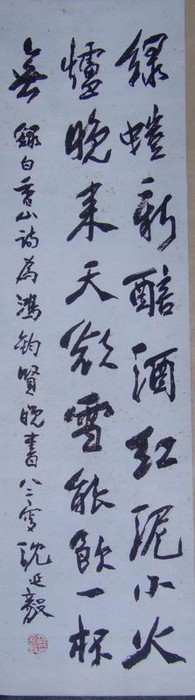 綠螘新醅酒紅泥小火
爐晚来天欲雪能飲一杯
無 錄白香山詩為鴻鈞賢晚書 八二叟沈延毅